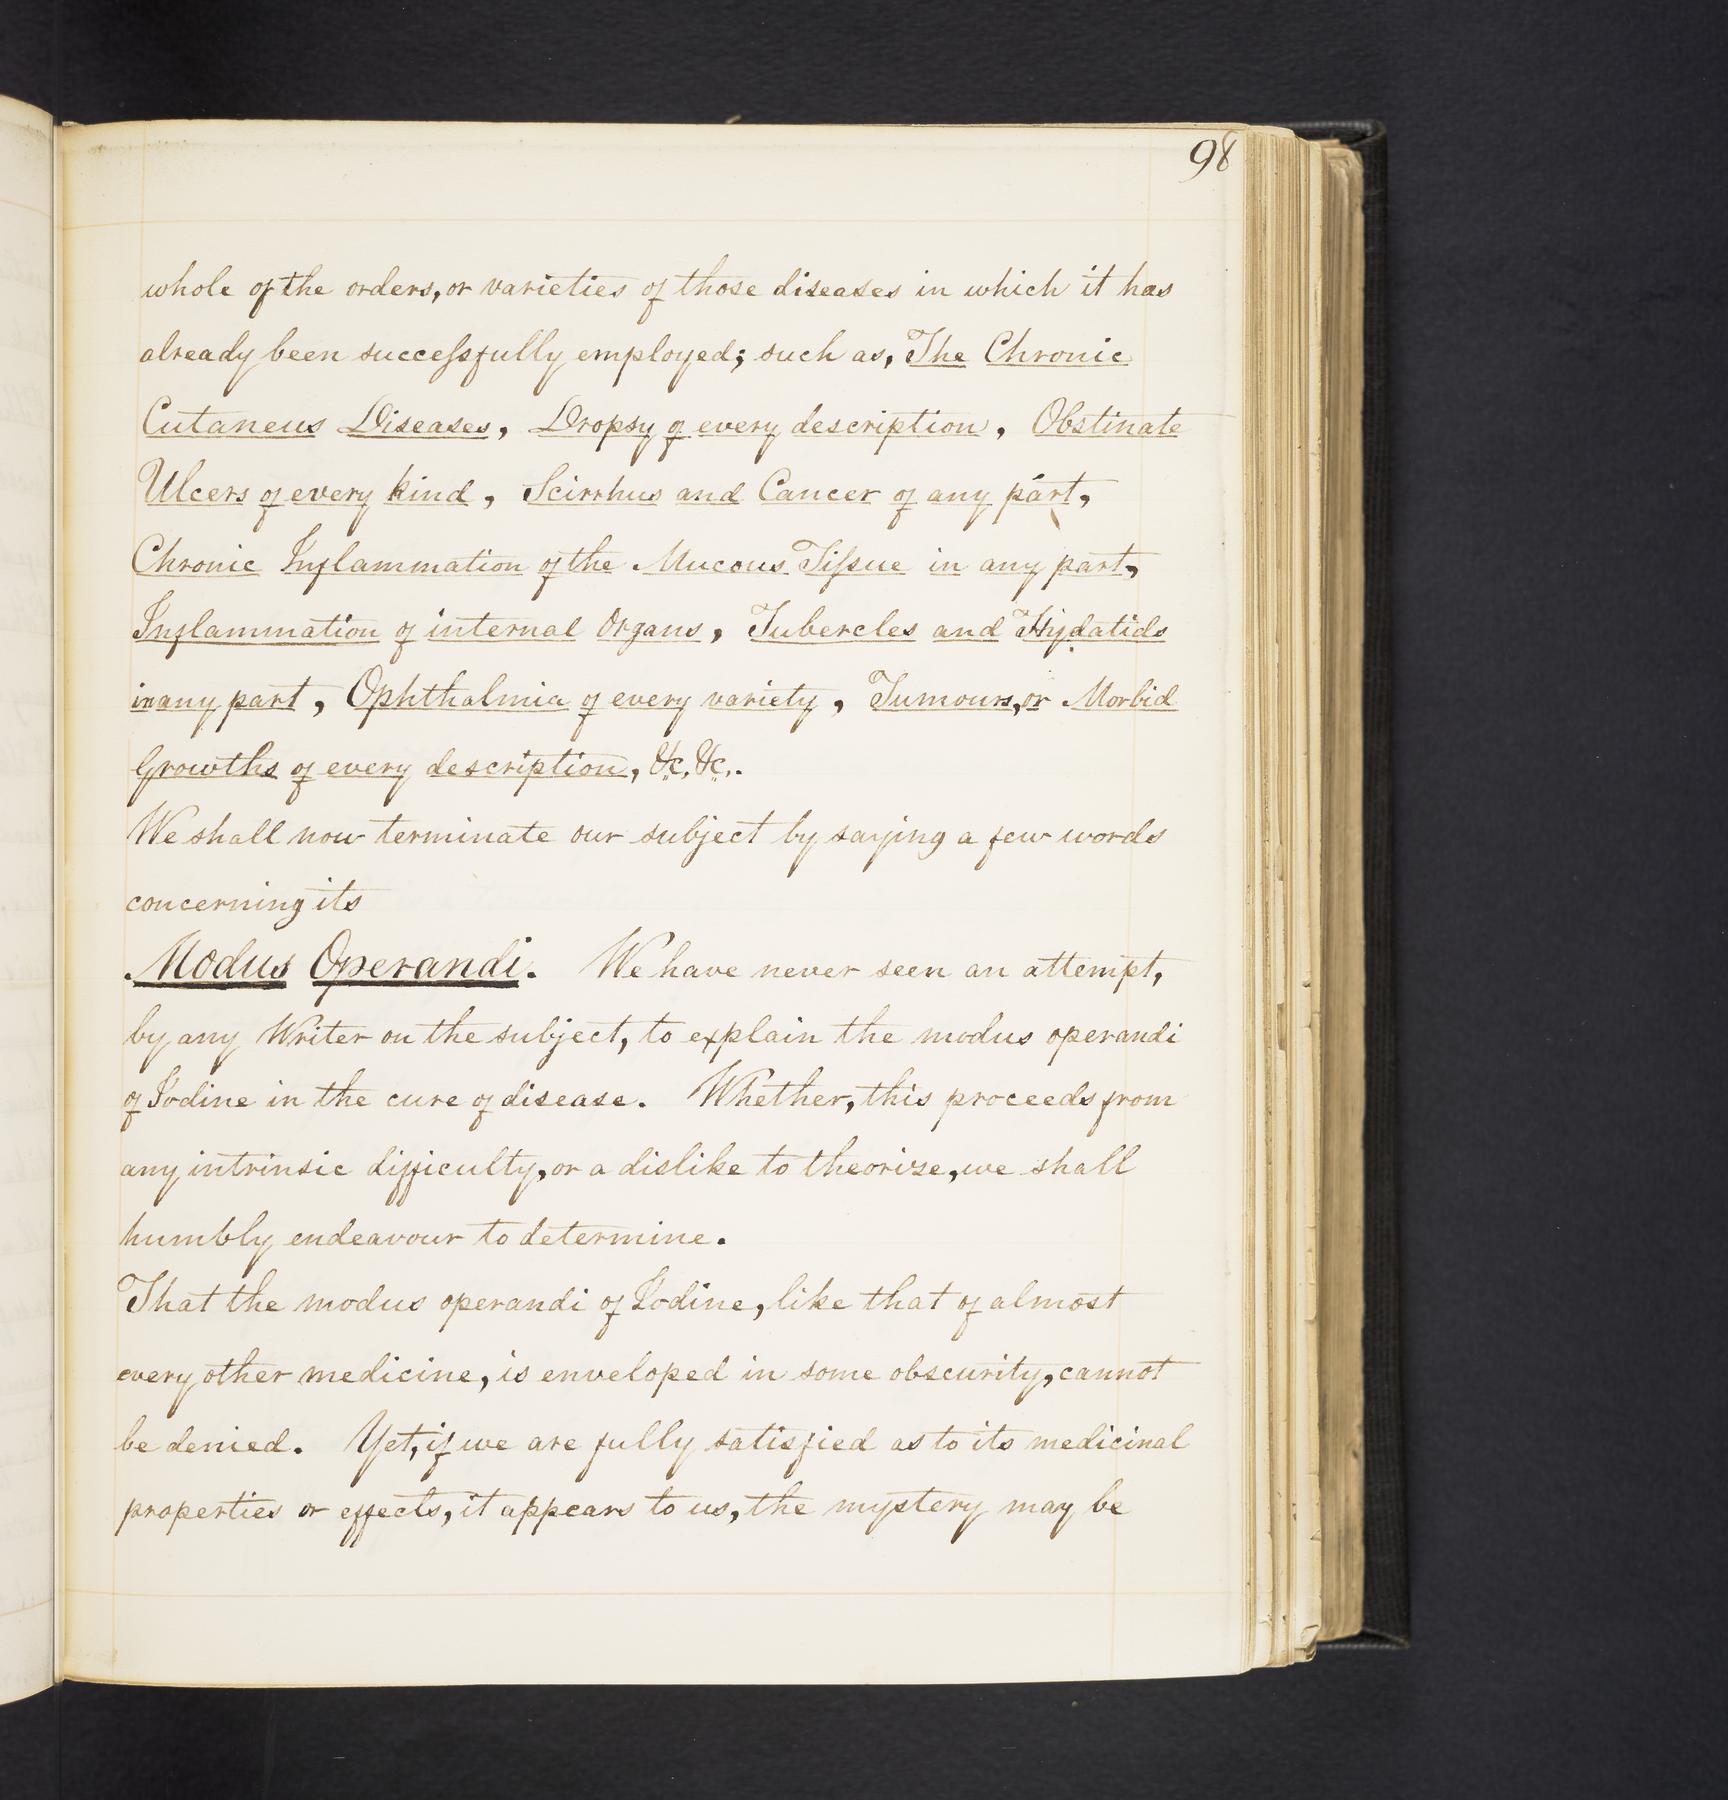 98
whole of the orders, or varieties of those diseases in which it has
already been successfully employed; such as, The Chronic
Cutaneus Diseases, Dropsy of every description, Obstinate
Ulcers of every kind, Scirrhus and Cancer of any part,
Chronic Inflammation of the Mucous Tissue in any part,
Inflammation of internal Organs, Tubercles and Hydatids
in any part, Ophthalmia of every variety, Tumours, or Morbid
Growths of every description, &c. &c..
We shall now terminate our subject by saying a few words
concerning its
Modus Operandi. We have never seen an attempt,
by any Writer on the subject, to explain the modus operandi
of Iodine in the cure of disease. Whether, this proceeds from
any intrinsic difficulty, or a dislike to theorize, we shall
humbly endeavour to determine.
That the modus operandi of Iodine, like that of almost
every other medicine, is enveloped in some obscurity, cannot
be denied. Yet, if we are fully satisfied as to its medicinal
properties or effects, it appears to us, the mystery may be